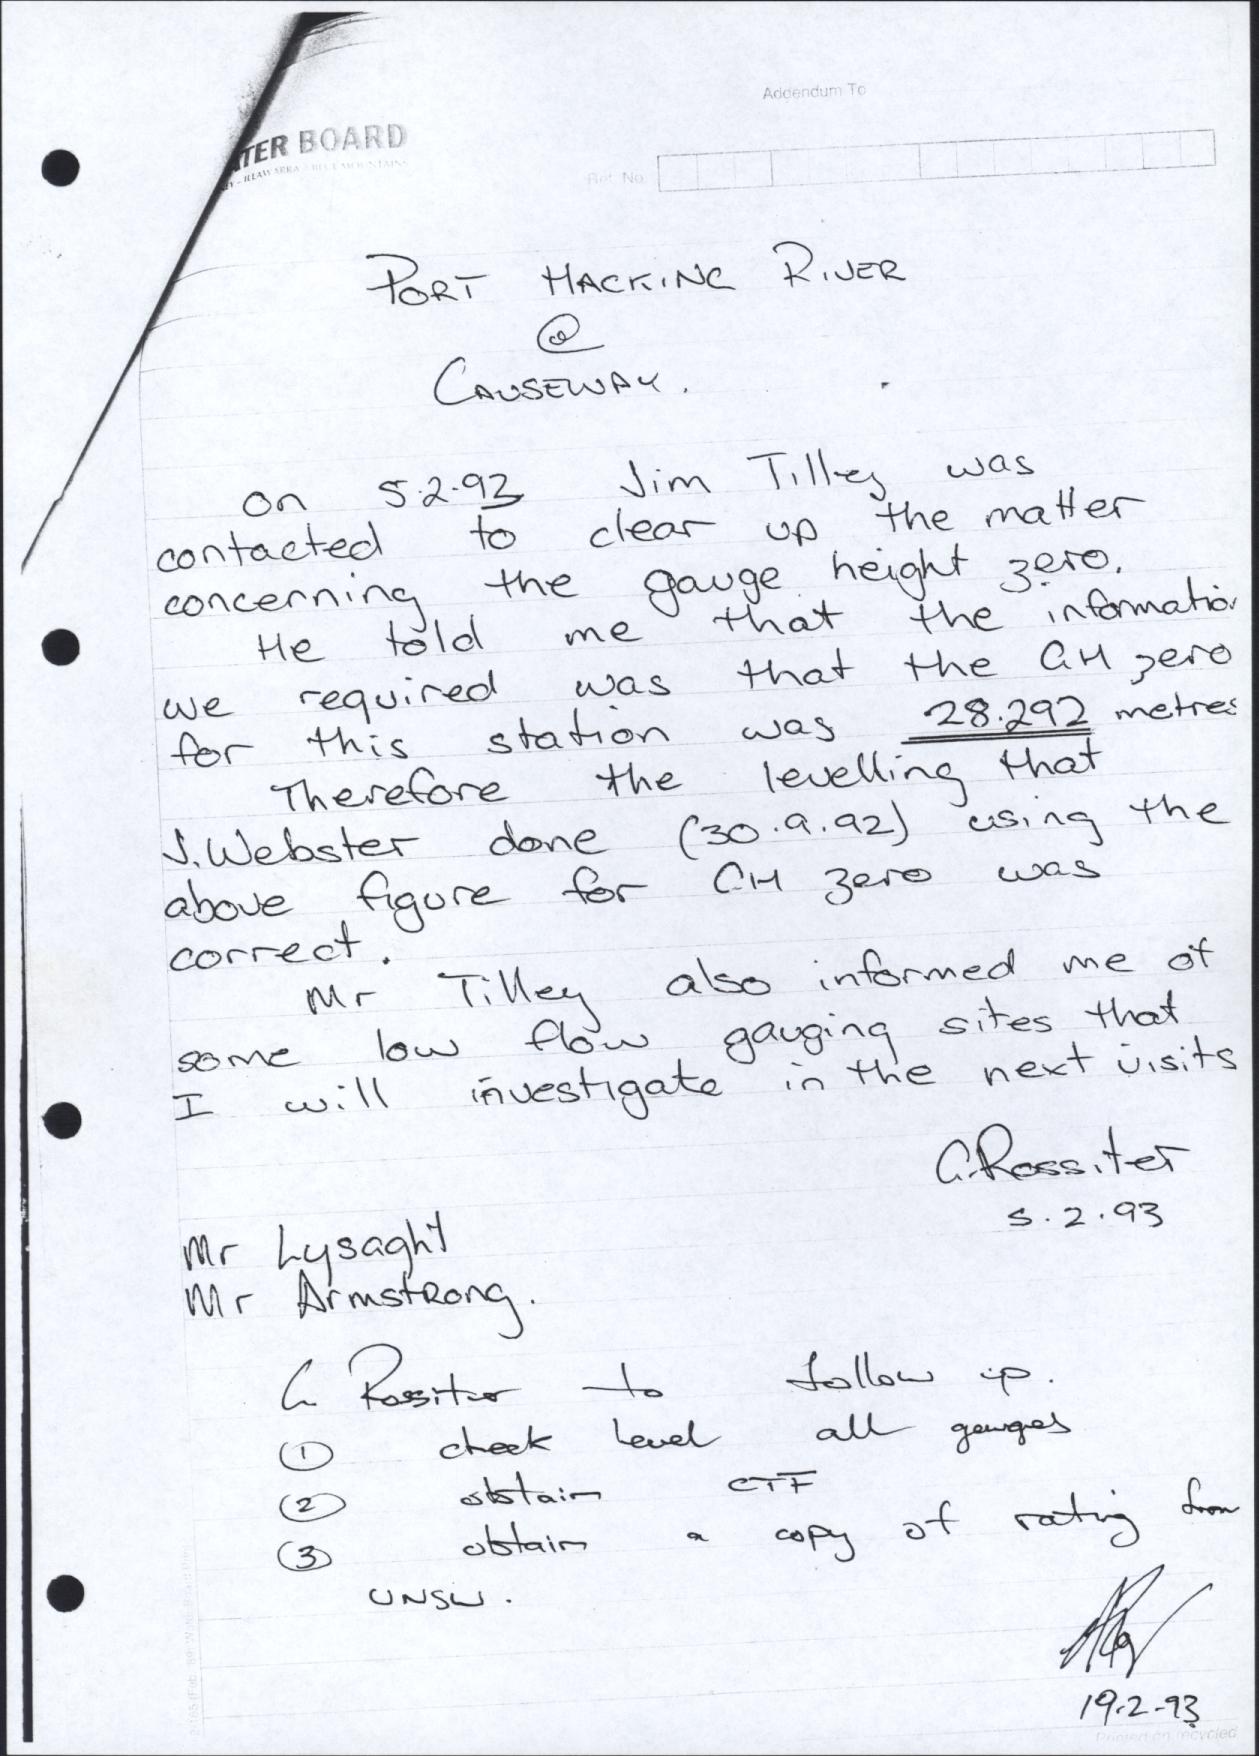 Addendum To
TER BOARD
EY - ILLAWARRA - BLUE MOUNTAINS
Ref. No.
PORT HACKING RIVER
@
CAUSEWAY.
On 5.2.93 Jim Tilley was
contacted to clear up the matter
concerning the gauge height zero.
He told me that the informatio
we required was that the GH zero
for this station was 28.292 metres
Therefore the levelling that
J. Webster done (30.9.92) using the
above figure for GH zero was
correct.
Mr Tilley also informed me of
some low flow gauging sites that
I will investigate in the next visits
G. Rossiter
5.2.93
Mr Lysaght
Mr Armstrong.
G Rossiter to follow up.
① check level all gauges
② obtain CTF
③ obtain a copy of rating from
UNSW.
19.2.93
Printed on recycled